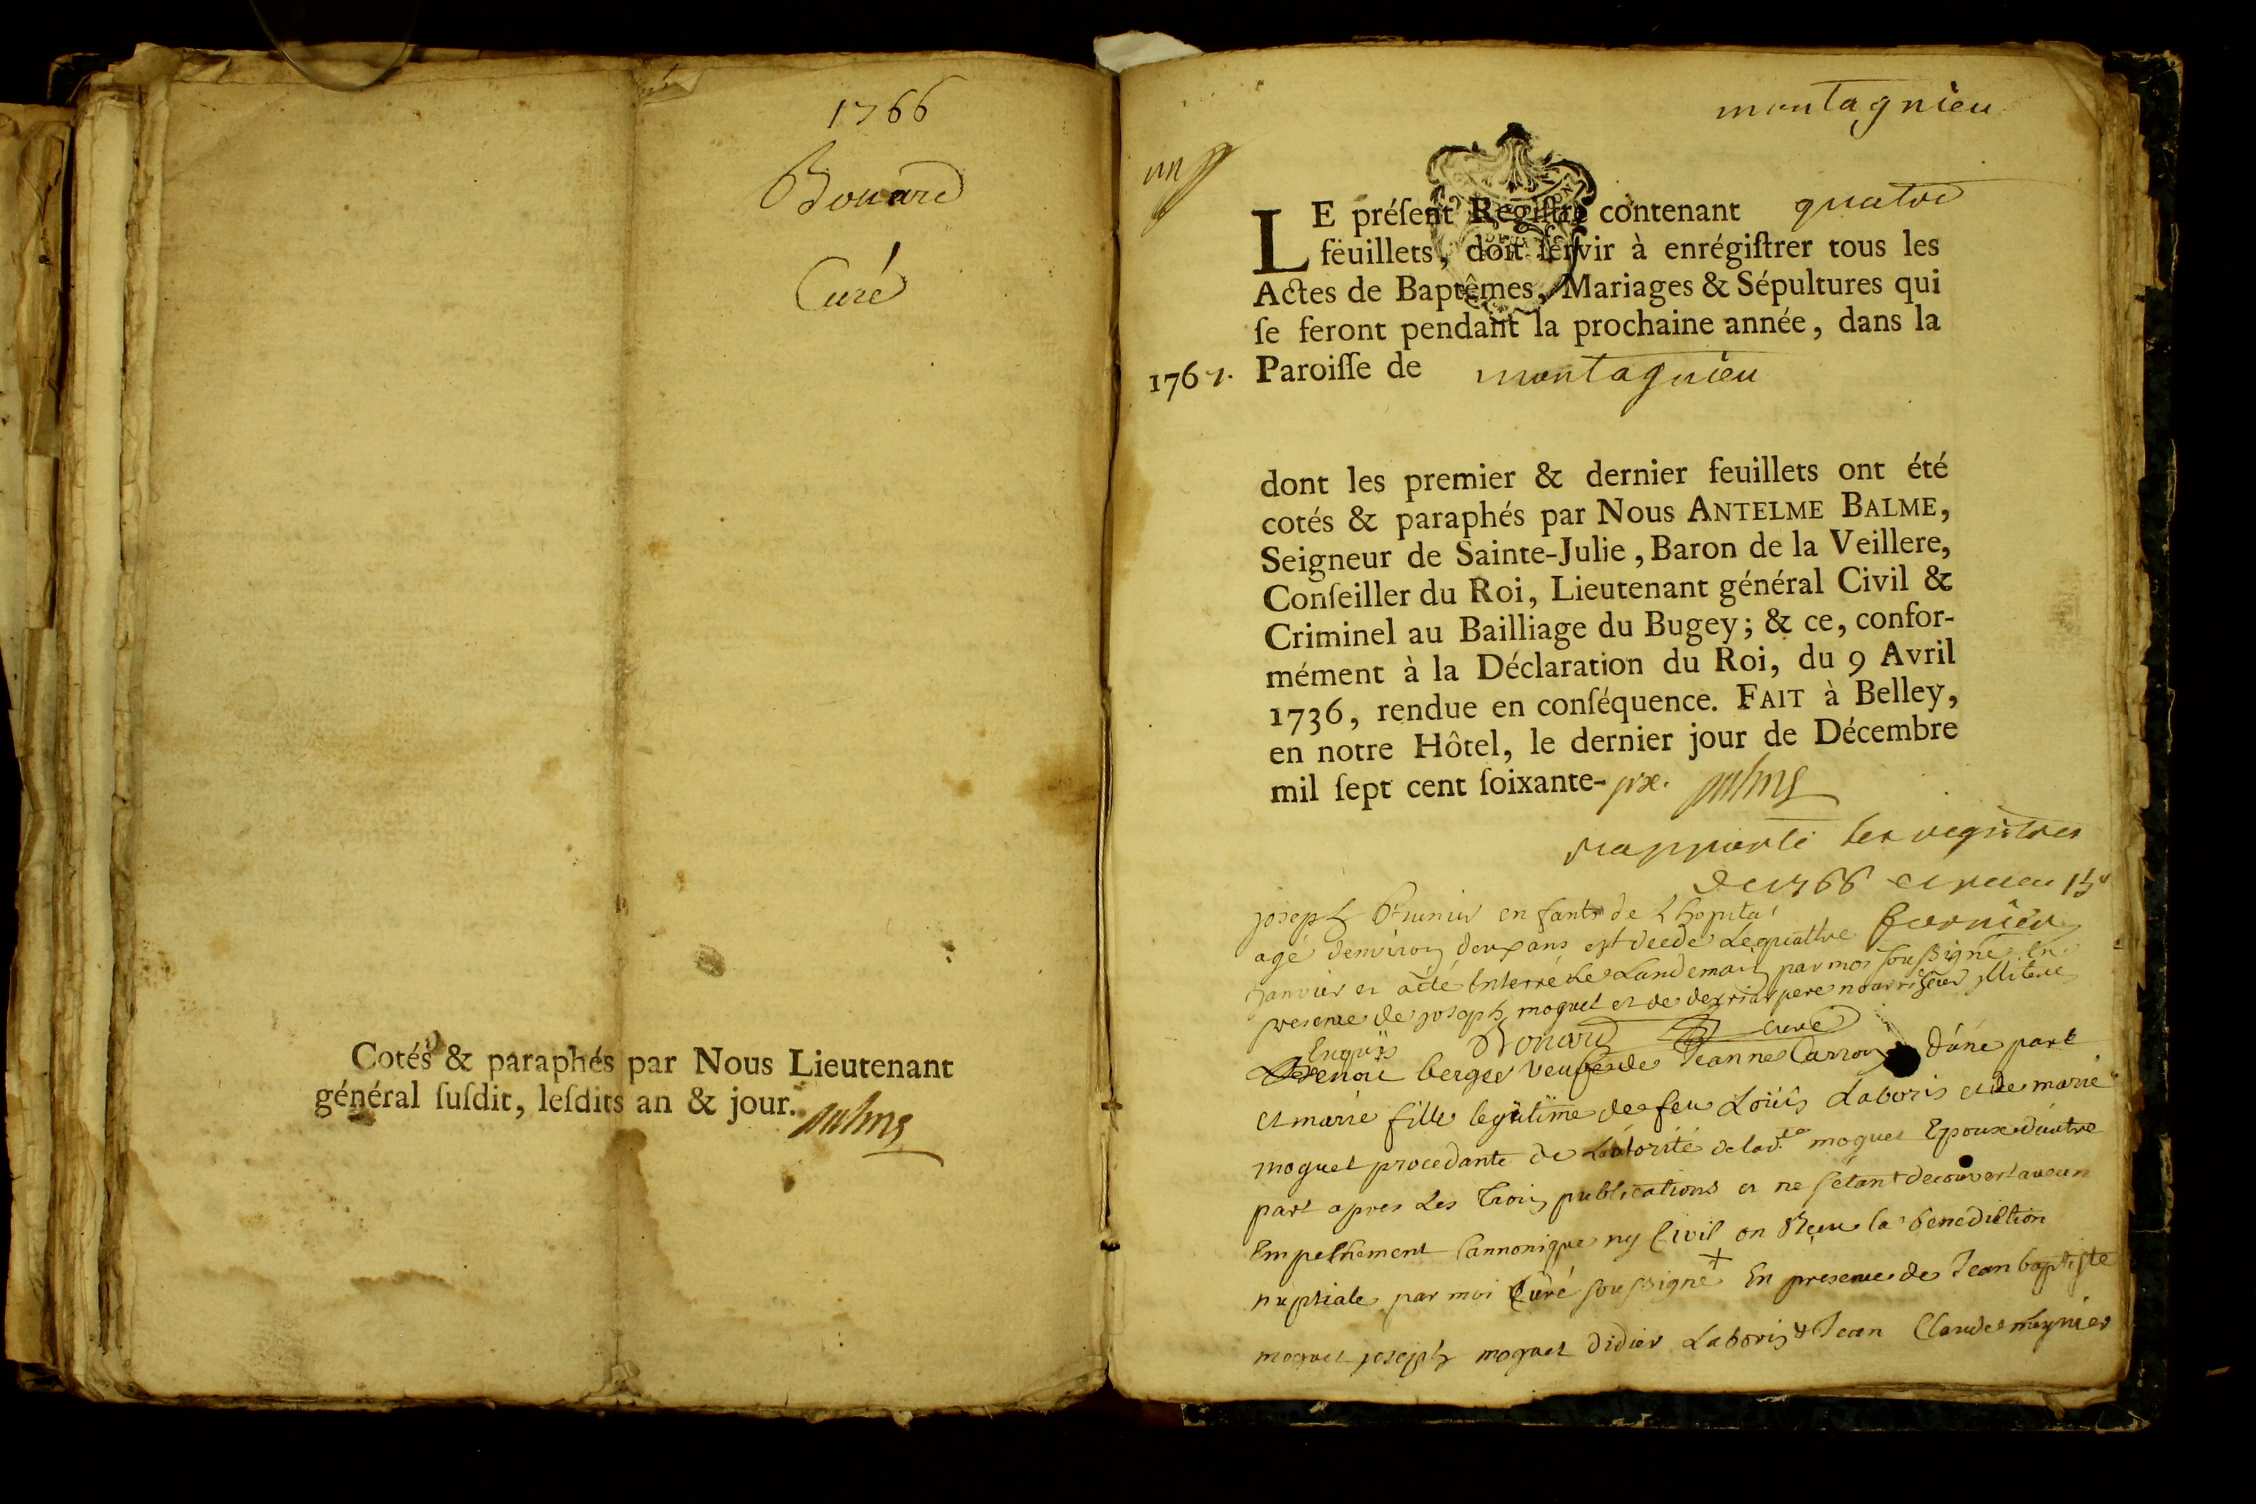 1766
Bouard
Curé
Cotés & paraphés par Nous Lieutenant
général ſuſdit, leſdits an & jour.
montagnieu
un
LE préſent Regiſtre contenant quatre
feuillets, doit ſervir à enrégiſtrer tous les
Actes de Baptêmes, Mariages & Sépultures qui
ſe feront pendant la prochaine année, dans la
1767. Paroiſſe de montagnieu
dont les premier & dernier feuillets ont été
cotés & paraphés par Nous ANTELME BALME,
Seigneur de Sainte-Julie, Baron de la Veillere,
Conſeiller du Roi, Lieutenant général Civil &
Criminel au Bailliage du Bugey; & ce, confor-
mément à la Déclaration du Roi, du 9 Avril
1736, rendue en conſéquence. FAIT à Belley,
en notre Hôtel, le dernier jour de Décembre
mil ſept cent ſoixante-six. Balme
rapporté les registres
de 1766 et receu 15ˢ
joseph enfant de L hopital
agé denviron deux ans est decede Le quattre
janvier et a été Enterré Le Landemain par moi soussigné En
presence de joseph moguet et de pere nourrissier illiteré
Enquis Bouard curé
benoit berger veuf de Jeanne Carron d'une part
et marie fille legitime de feu Loüis Laboris et de marie
moguet procedante de L'autorité de lad.te moguet Epoux d'autre
part apres Les trois publications et ne s'étant decouvert aucun
Empechement Cannonique ny Civil on Reçu la benediction
nuptiale par moi Curé soussigné + En presence de Jean baptiste
moguet joseph moguet didier Laboris & Jean Claude meynier